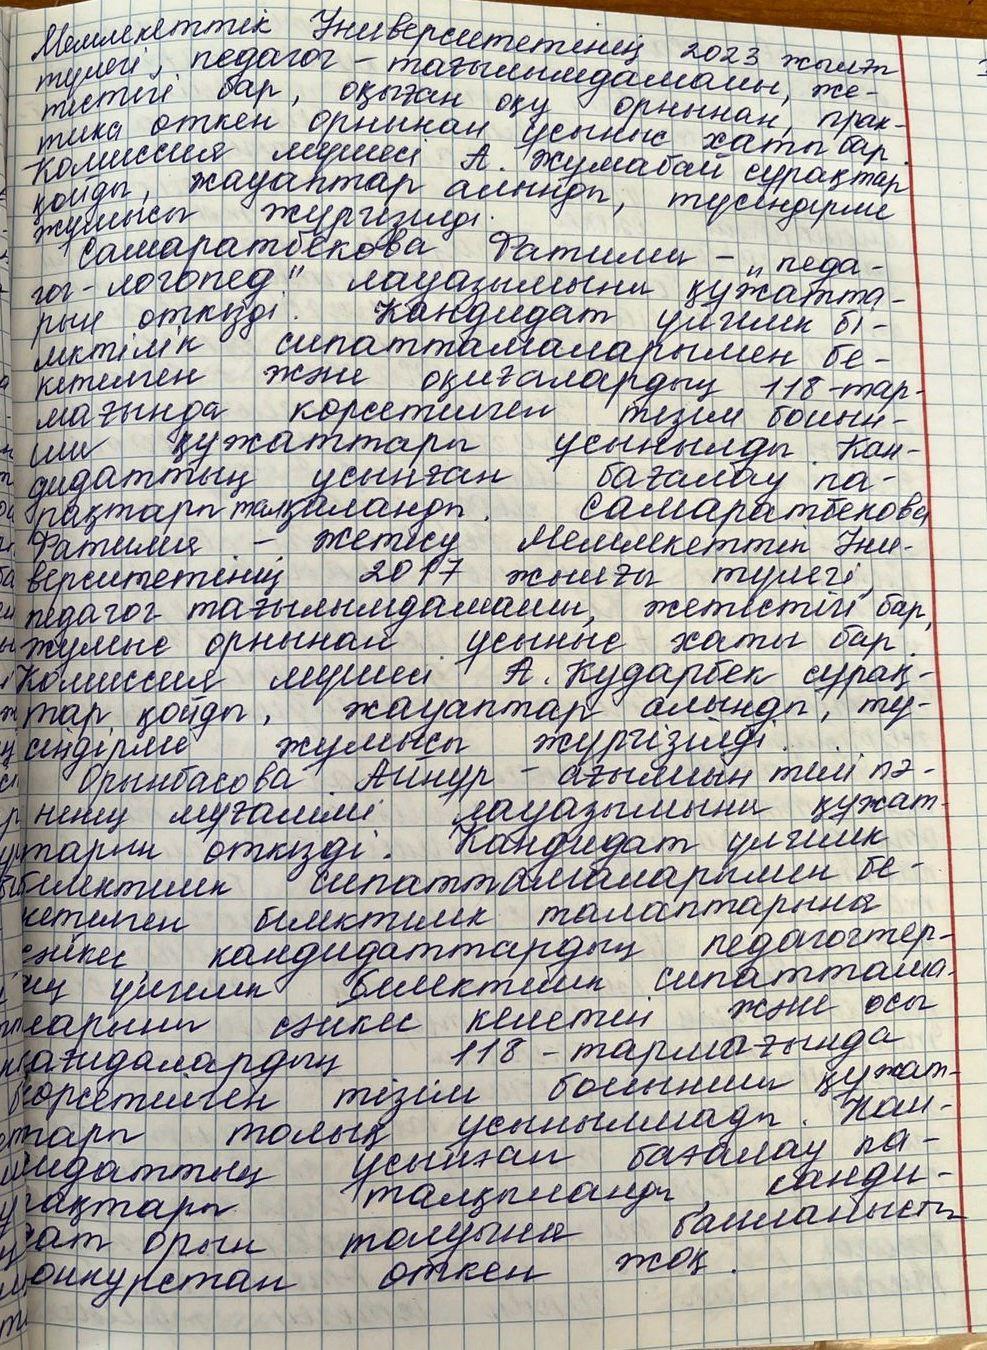 Мемлекеттік Университетінің 2023 жылғы
түлегі, педагог-тағылымдамашы, же-
тістігі бар, оқыған оқу орнынан, прак-
тика өткен орнынан ұсыныс хаты бар.
Комиссия мүшесі А. Жумабай сұрақтар
қойды, жауаптар алынды, түсіндірме
жұмысы жүргізілді.
Самаратбекова Фатима - „педа-
гог-логопед" лауазымына құжатта-
рын өткізді. Кандидат үлгілік бі-
ліктілік сипаттамаларымен бе-
кітілген және оқиғалардың 118-тар-
мағында көрсетілген тізім бойын-
ша құжаттары ұсынылды. Кан-
дидаттың ұсынған бағалау па-
рақтары талқыланды. Самаратбекова
Фатима - Жетісу Мемлекеттік Уни-
верситетінің 2017 жылғы түлегі,
педагог тағылымдамашы, жетістігі бар,
жұмыс орнынан ұсыныс хаты бар.
Комиссия мүшесі А. Кударбек сұрақ-
тар қойды, жауаптар алынды, тү-
сіндірме жұмысы жүргізілді.
Орынбасова Айнур - ағылшын тілі пә-
нінің мұғалімі лауазымына құжат-
тарын өткізді. Кандидат үлгілік
біліктілік сипаттамаларымен бе-
кітілген біліктілік талаптарына
сәйкес кандидаттардың педагогтер-
дің үлгілік біліктілік сипаттама-
ларына сәйкес келетін және осы
қағидалардың 118-тармағында
көрсетілген тізім бойынша құжат-
тары толық ұсынылмады. Кан-
дидаттың ұсынған бағалау па-
рақтары талқыланды, канди-
дат орын толуына байланысты
конкурстан өткен жоқ.